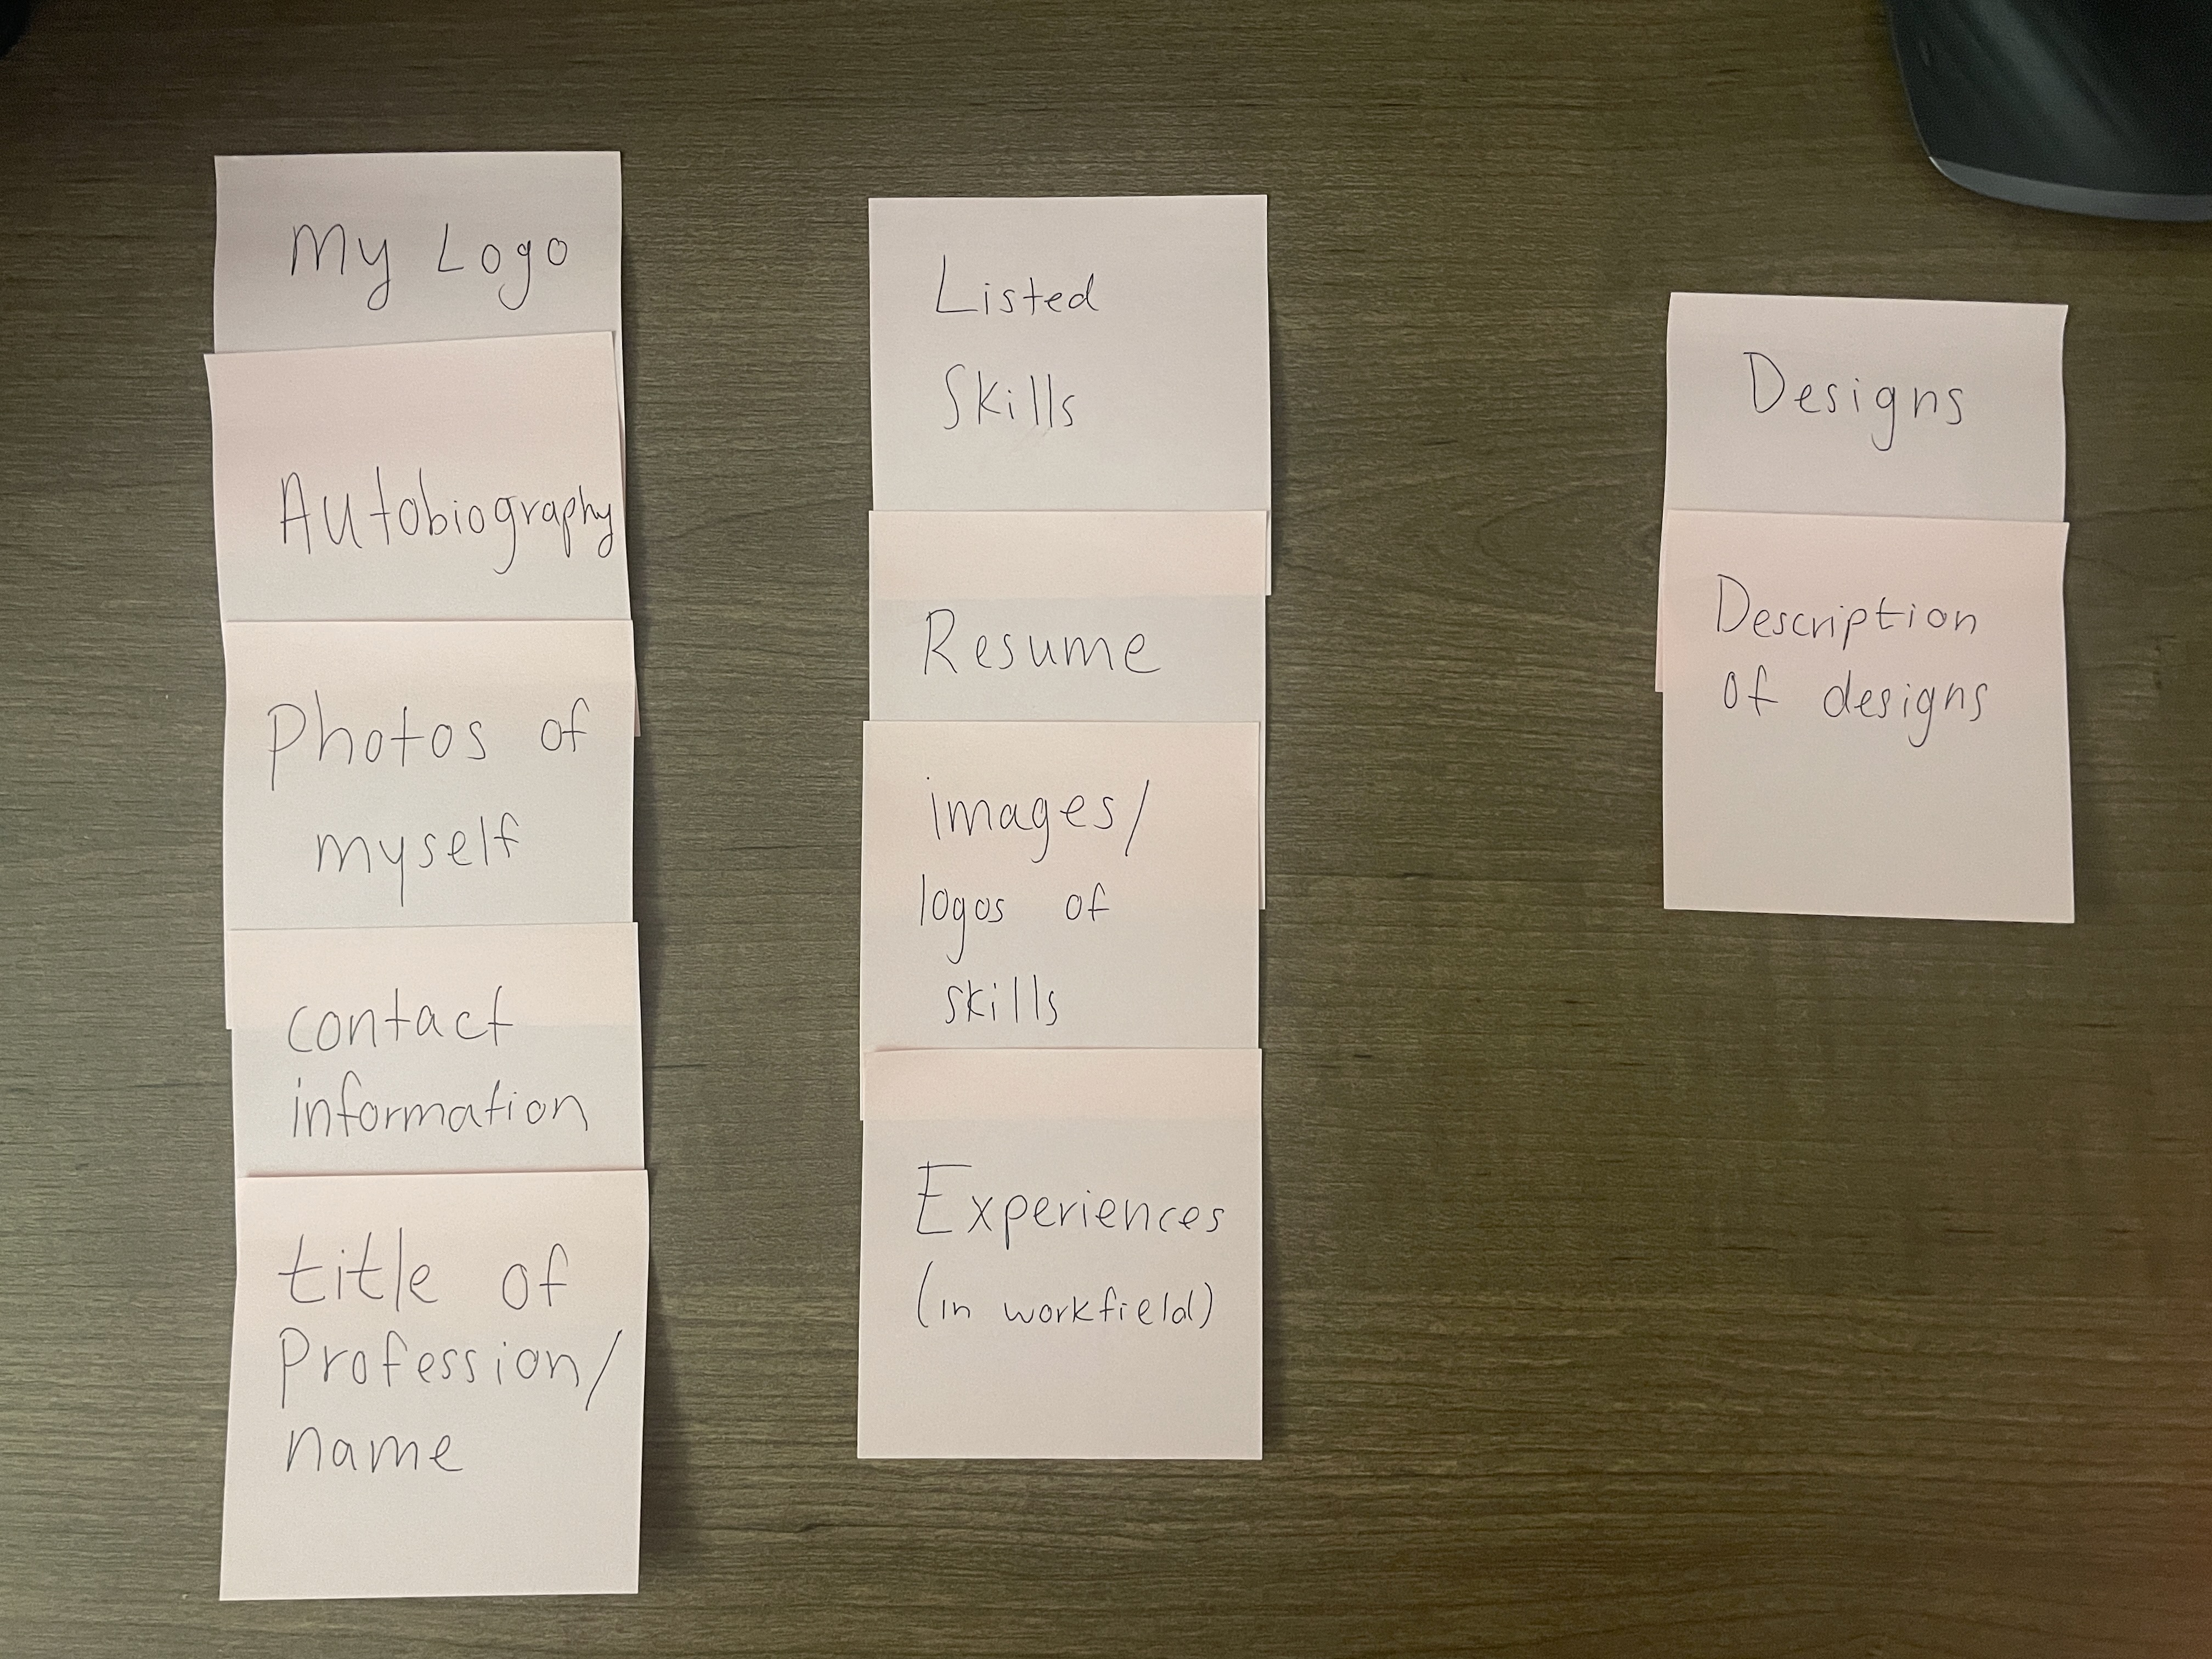 My Logo
Autobiography
Photos of
myself
contact
information
title of
Profession/
name
Listed
Skills
Resume
images/
logos of
skills
Experiences
(in workfield)
Designs
Description
of designs